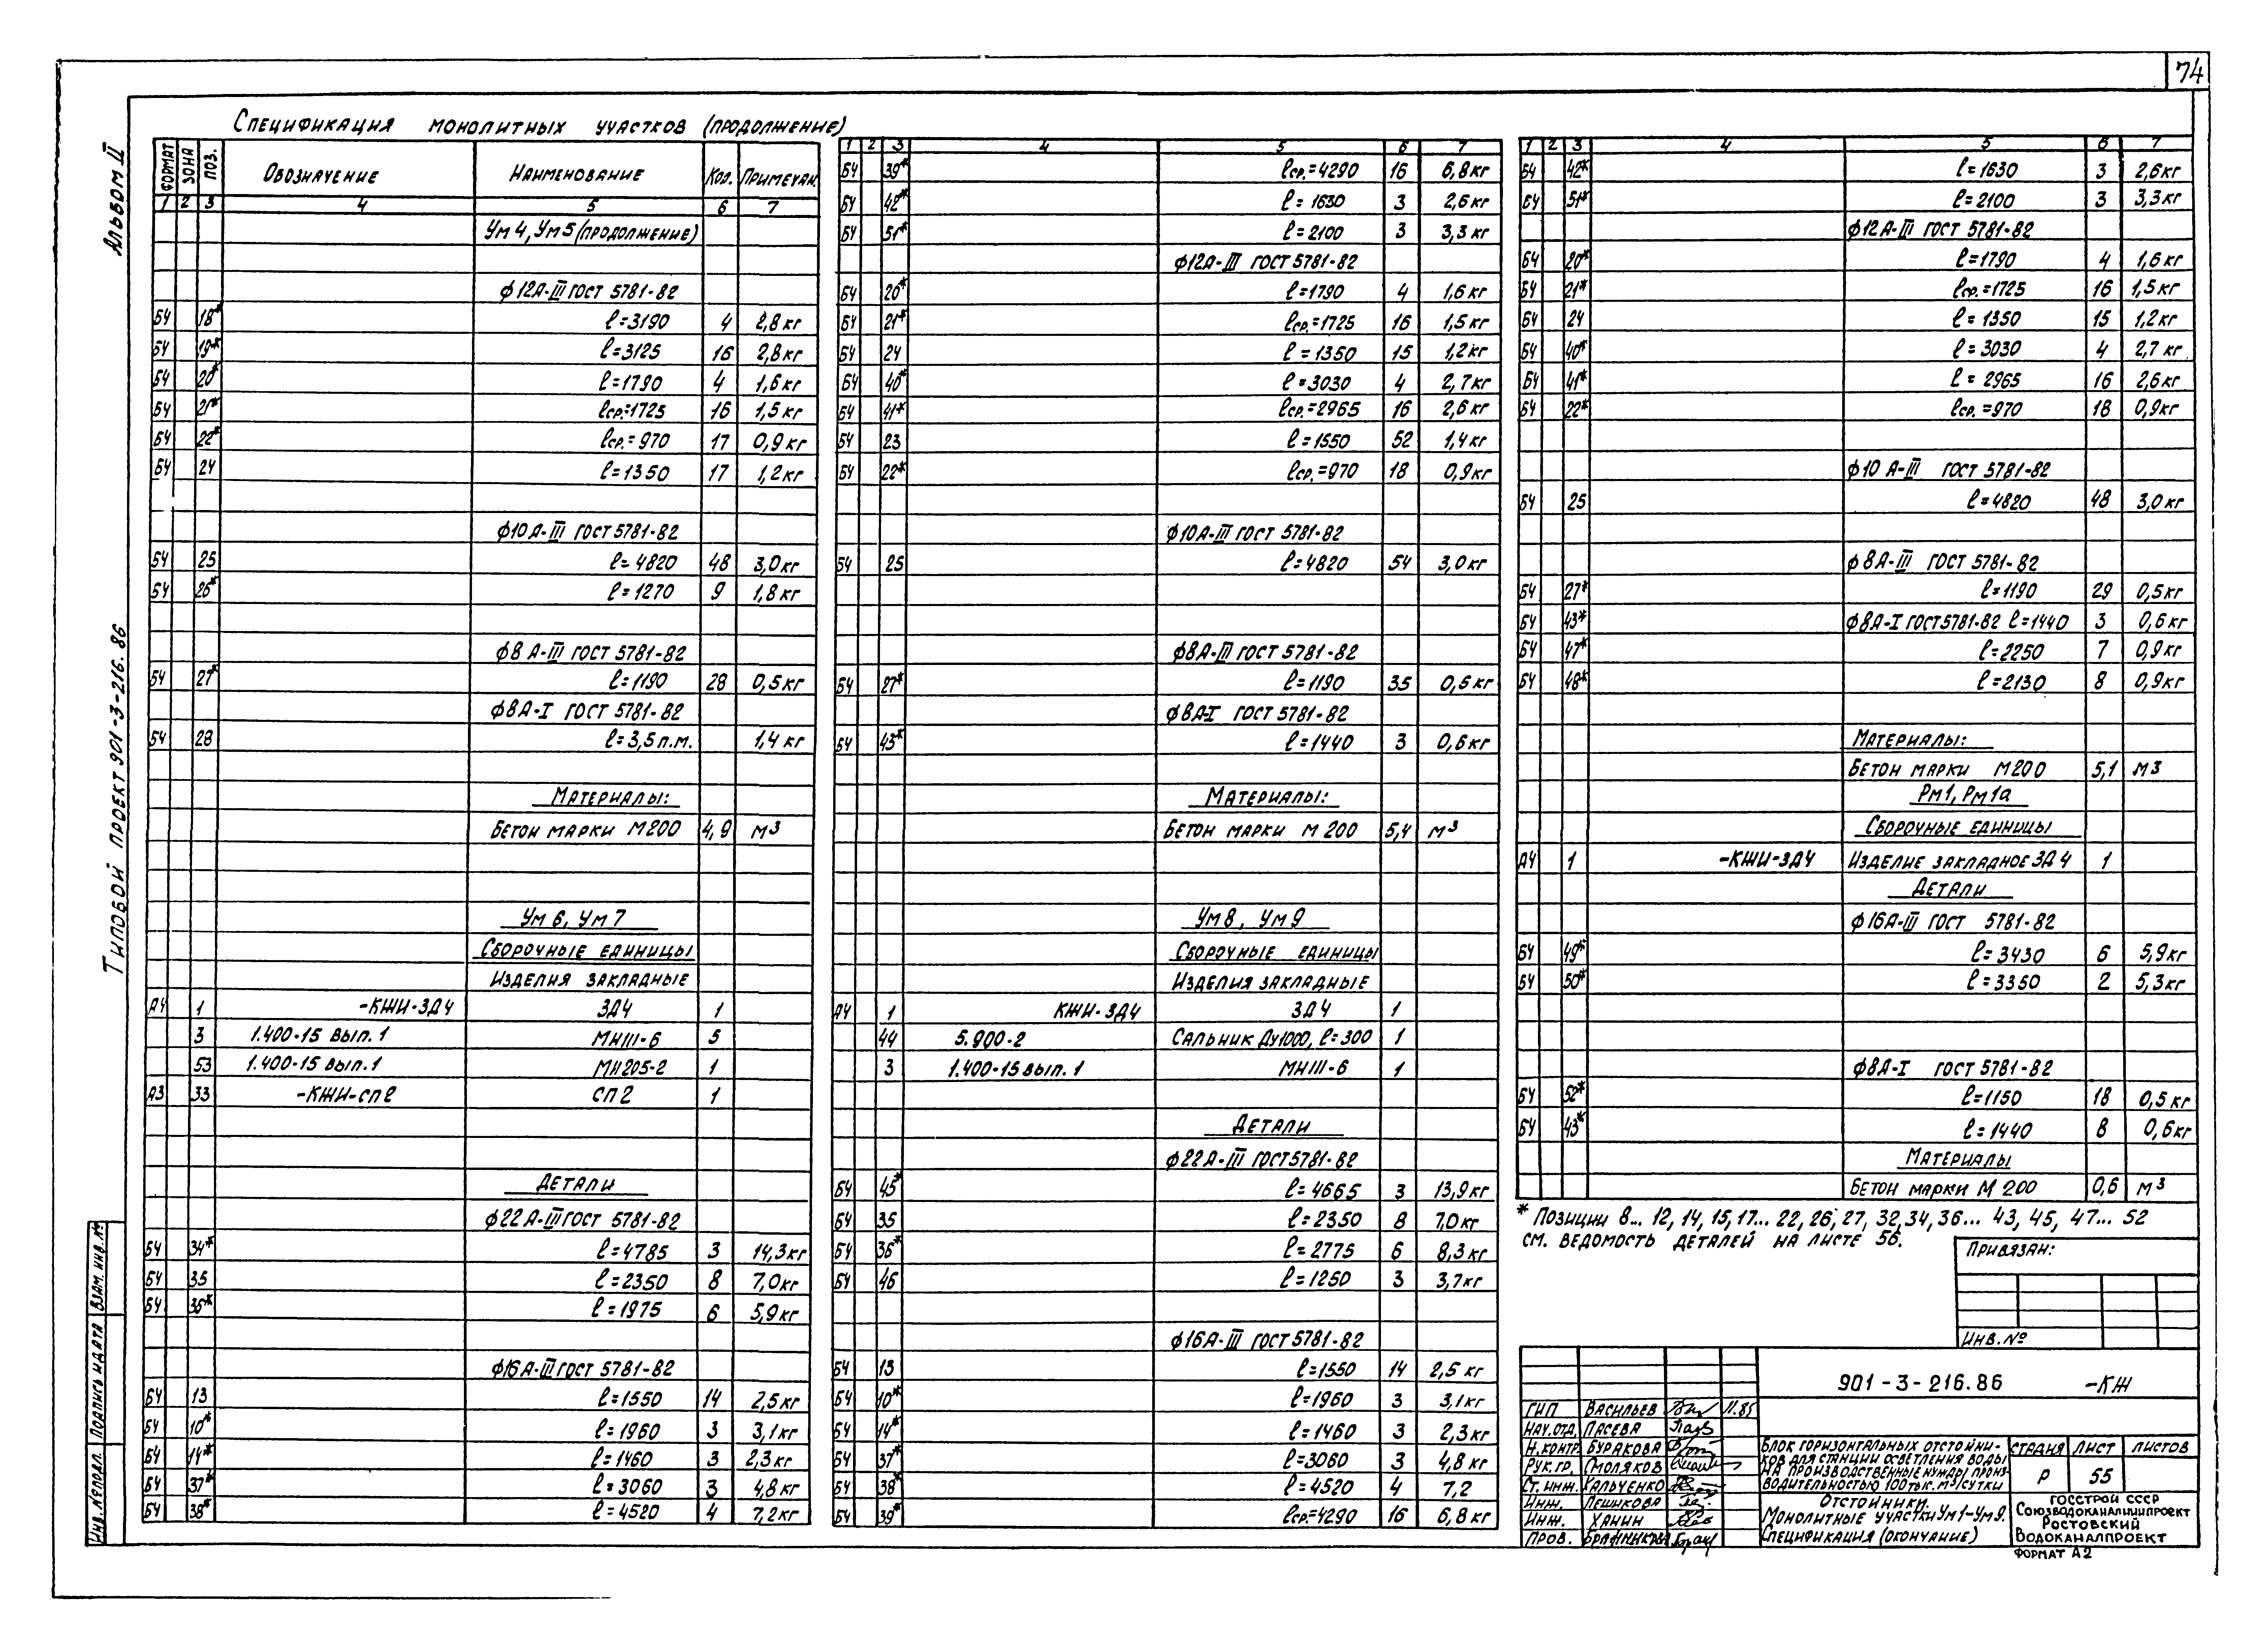 74
Альбом II
Типовой проект 901-3-216.86
Спецификация монолитных участков (продолжение)
Формат Зона Поз. Обозначение Наименование Кол. Примечан.
1 2 3 4 5 6 7
Ум 4, Ум 5 (продолжение)
ф12А-III ГОСТ 5781-82
БЧ 18* ℓ=3190 4 2,8 кг
БЧ 19* ℓ=3125 16 2,8 кг
БЧ 20* ℓ=1790 4 1,6 кг
БЧ 21* ℓср.=1725 16 1,5 кг
БЧ 22* ℓср.=970 17 0,9 кг
БЧ 24 ℓ=1350 17 1,2 кг
ф10А-III ГОСТ 5781-82
БЧ 25 ℓ=4820 48 3,0 кг
БЧ 26* ℓ=1270 9 1,8 кг
ф8 А-III ГОСТ 5781-82
БЧ 27* ℓ=1190 28 0,5 кг
ф8А-I ГОСТ 5781-82
БЧ 28 ℓ=3,5 п.м. 1,4 кг
Материалы:
Бетон марки М200 4,9 м3
Ум 6, Ум 7
Сборочные единицы
Изделия закладные
А4 1 -КЖИ-ЗД4 ЗД4 1
3 1.400-15 вып.1 МН111-6 5
53 1.400-15 вып.1 МН205-2 1
А3 33 -КЖИ-СП2 СП2 1
Детали
ф22 А-III ГОСТ 5781-82
БЧ 34* ℓ=4785 3 14,3 кг
БЧ 35 ℓ=2350 8 7,0 кг
БЧ 36* ℓ=1975 6 5,9 кг
ф16 А-III ГОСТ 5781-82
БЧ 13 ℓ=1550 14 2,5 кг
БЧ 10* ℓ=1960 3 3,1 кг
БЧ 14* ℓ=1460 3 2,3 кг
БЧ 37* ℓ=3060 3 4,8 кг
БЧ 38* ℓ=4520 4 7,2 кг
1 2 3 4 5 6 7
БЧ 39* ℓср.=4290 16 6,8 кг
БЧ 42* ℓ=1630 3 2,6 кг
БЧ 51* ℓ=2100 3 3,3 кг
ф12А-III ГОСТ 5781-82
БЧ 20* ℓ=1790 4 1,6 кг
БЧ 21* ℓср.=1725 16 1,5 кг
БЧ 24 ℓ=1350 15 1,2 кг
БЧ 40* ℓ=3030 4 2,7 кг
БЧ 41* ℓср.=2965 16 2,6 кг
БЧ 23 ℓ=1550 52 1,4 кг
БЧ 22* ℓср.=970 18 0,9 кг
ф10А-III ГОСТ 5781-82
БЧ 25 ℓ=4820 54 3,0 кг
ф8А-III ГОСТ 5781-82
БЧ 27* ℓ=1190 35 0,5 кг
ф8А-I ГОСТ 5781-82
БЧ 43* ℓ=1440 3 0,6 кг
Материалы:
Бетон марки М 200 5,4 м3
Ум 8, Ум 9
Сборочные единицы
Изделия закладные
А4 1 КЖИ-ЗД4 ЗД4 1
44 5.900-2 Сальник Ду1000, ℓ=300 1
3 1.400-15 вып.1 МН111-6 1
Детали
ф22А-III ГОСТ 5781-82
БЧ 45* ℓ=4665 3 13,9 кг
БЧ 35 ℓ=2350 8 7,0 кг
БЧ 36* ℓ=2775 6 8,3 кг
БЧ 46 ℓ=1250 3 3,7 кг
ф16А-III ГОСТ 5781-82
БЧ 13 ℓ=1550 14 2,5 кг
БЧ 10* ℓ=1960 3 3,1 кг
БЧ 14* ℓ=1460 3 2,3 кг
БЧ 37* ℓ=3060 3 4,8 кг
БЧ 38* ℓ=4520 4 7,2
БЧ 39* ℓср.=4290 16 6,8 кг
1 2 3 4 5 6 7
БЧ 42* ℓ=1630 3 2,6 кг
БЧ 51* ℓ=2100 3 3,3 кг
ф12А-III ГОСТ 5781-82
БЧ 20* ℓ=1790 4 1,6 кг
БЧ 21* ℓср.=1725 16 1,5 кг
БЧ 24 ℓ=1350 15 1,2 кг
БЧ 40* ℓ=3030 4 2,7 кг
БЧ 41* ℓ=2965 16 2,6 кг
БЧ 22* ℓср.=970 18 0,9 кг
ф10 А-III ГОСТ 5781-82
БЧ 25 ℓ=4820 48 3,0 кг
ф8А-III ГОСТ 5781-82
БЧ 27* ℓ=1190 29 0,5 кг
БЧ 43* ф8А-I ГОСТ 5781-82 ℓ=1440 3 0,6 кг
БЧ 47* ℓ=2250 7 0,9 кг
БЧ 48* ℓ=2130 8 0,9 кг
Материалы:
Бетон марки М200 5,1 м3
Рм1, Рм1а
Сборочные единицы
А4 1 -КЖИ-ЗД4 Изделие закладное ЗД4 1
Детали
ф16А-III ГОСТ 5781-82
БЧ 49* ℓ=3430 6 5,9 кг
БЧ 50* ℓ=3350 2 5,3 кг
ф8А-I ГОСТ 5781-82
БЧ 52* ℓ=1150 18 0,5 кг
БЧ 43* ℓ=1440 8 0,6 кг
Материалы
Бетон марки М 200 0,6 м3
* Позиции 8... 12, 14, 15, 17... 22, 26, 27, 32, 34, 36... 43, 45, 47... 52
см. ведомость деталей на листе 56.
Привязан:
Инв.№
901-3-216.86 -КЖ
ГИП Васильев 11.85
Нач.отд. Пасева
Н.контр. Буракова
Рук.гр. Смоляков
Ст.инж. Кальченко
Инж. Лешкова
Инж. Ханин
Пров.
Блок горизонтальных отстойни-
ков для станции осветления воды
на производственные нужды произ-
водительностью 100 тыс. м3/сутки
Стадия Лист Листов
Р 55
Отстойники.
Монолитные участки Ум1-Ум9.
Спецификация (окончание)
Госстрой СССР
Союзводоканалниипроект
Ростовский
Водоканалпроект
Формат А2
Взам. инв.№
Подпись и дата
Инв.№ подл.